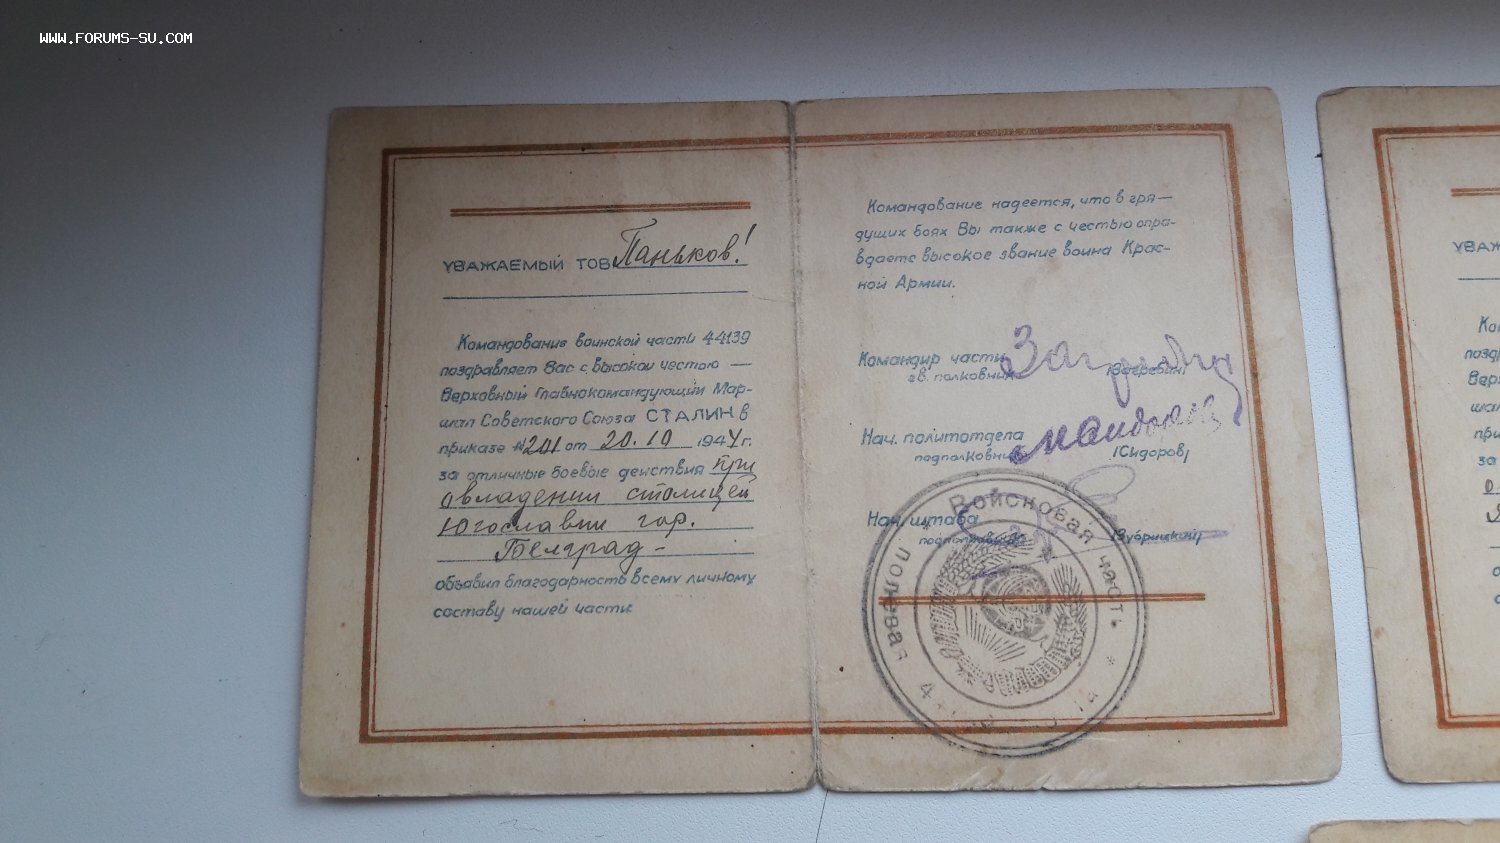 WWW.FORUMS-SU.COM
УВАЖАЕМЫЙ ТОВ. Паньков!
Командование воинской части 44139
поздравляет Вас с высокой честью —
Верховный Главнокомандующий Мар-
шал Советского Союза СТАЛИН в
приказе № 201 от 20.10 1944 г.
за отличные боевые действия при
овладении столицей
Югославии гор.
Белград -
объявил благодарность всему личному
составу нашей части
Командование надеется, что в гря-
дущих боях Вы также с честью опра-
вдаете высокое звание воина Крас-
ной Армии.
Командир части
гв. полковник
Нач. политотдела
подполковник /Сидоров/
Нач. штаба
подполковник
Войсковая часть
полевая
УВАЖ